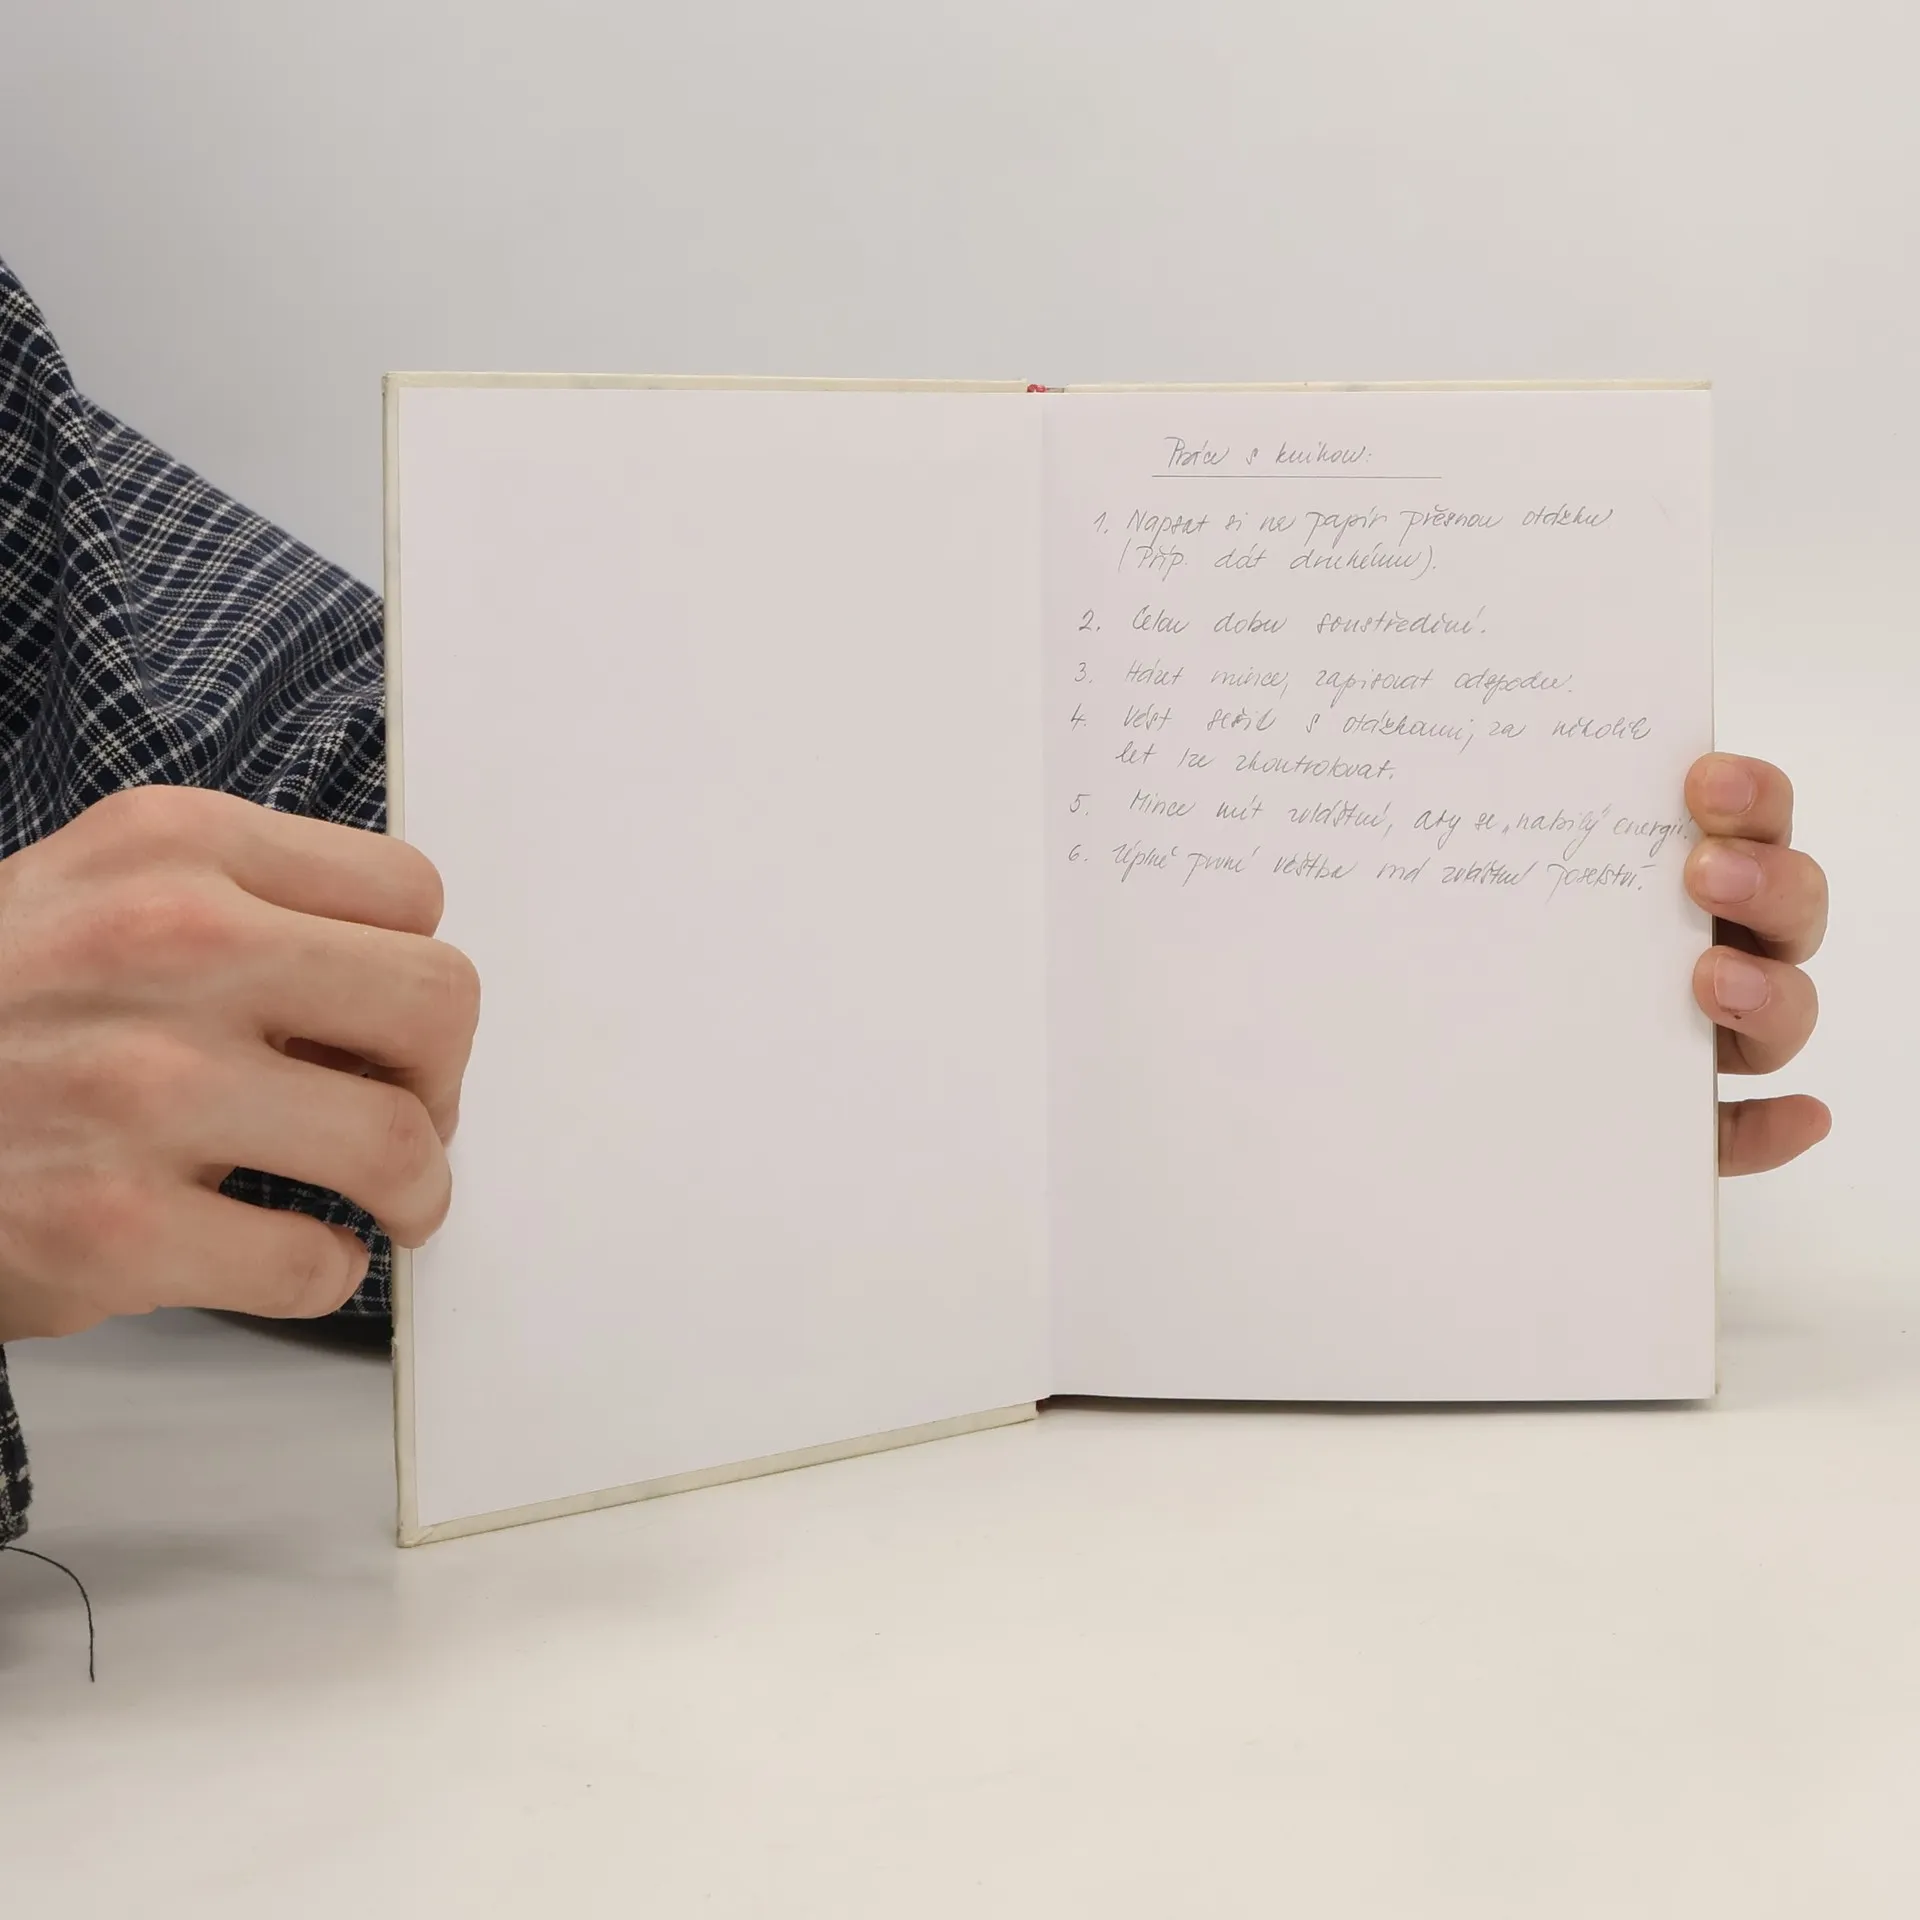 Práce s knihou:
1. Napsat si na papír přesnou otázku
(Příp. dát druhému).
2. Celou dobu soustředění.
3. Házet mince, zapisovat odspodu.
4. Vést sešit s otázkami, za několik
let lze zkontrolovat.
5. Mince mít zvláštní, aby se „nabily" energií.
6. Úplně první věštba má zvláštní poselství.